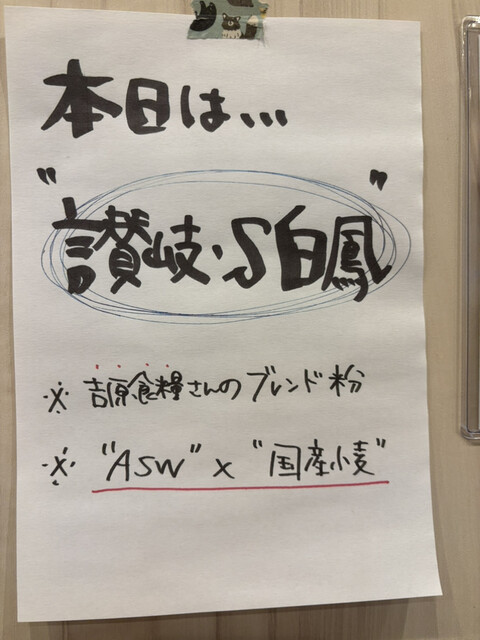 本日は...
"讃岐・S白鳳"
※ 吉原食糧さんのブレンド粉
※ "ASW" x "国産小麦"